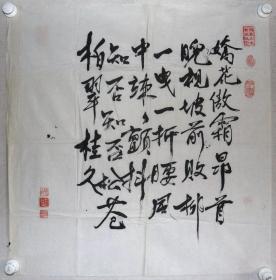 娇花傲霜昂首
睨视坡前败柳
一曳一折腰风
中竦竦颤抖
知否知否松苍
柏翠桂久